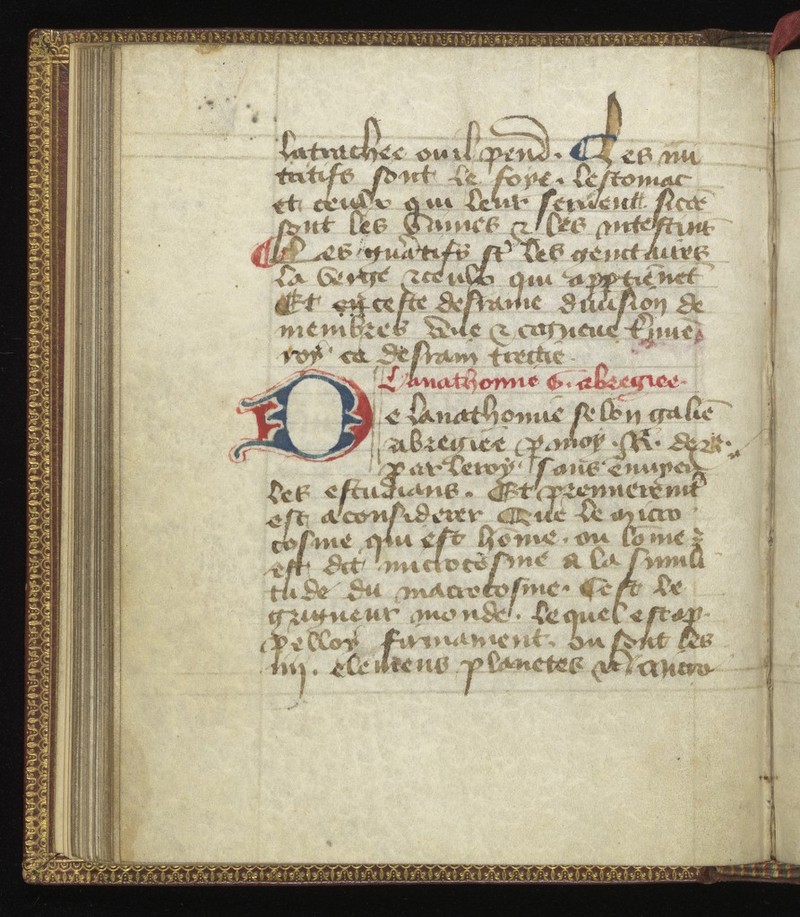 latrachee ou il pend. Les nu
tritifs sont le foye. lestomac
et ceulx qui leur seruent sicōe
sont les vaines ⁊ les intestins
Les gn̄ratifs st̄ les genitaires
la verge ⁊ ceulx qui apptiēnēt
Et en ceste desraine diuision de
membres veue ⁊ cogneue
ce desrain
Lanathomie G. abregiee.
De lanathomie selon galiē
abregiee p moy .R.
par leroy sans ennuyer
les estudians. Et premieremēt
est a considerer Que le micro
cosme qui est hōme. ou lōme
est dit microcosme a la simili
tude du macrocosme. Cest le
grigneur monde. lequel est ap
pelloy firmament. ou sont les
iiij. elemens planetes